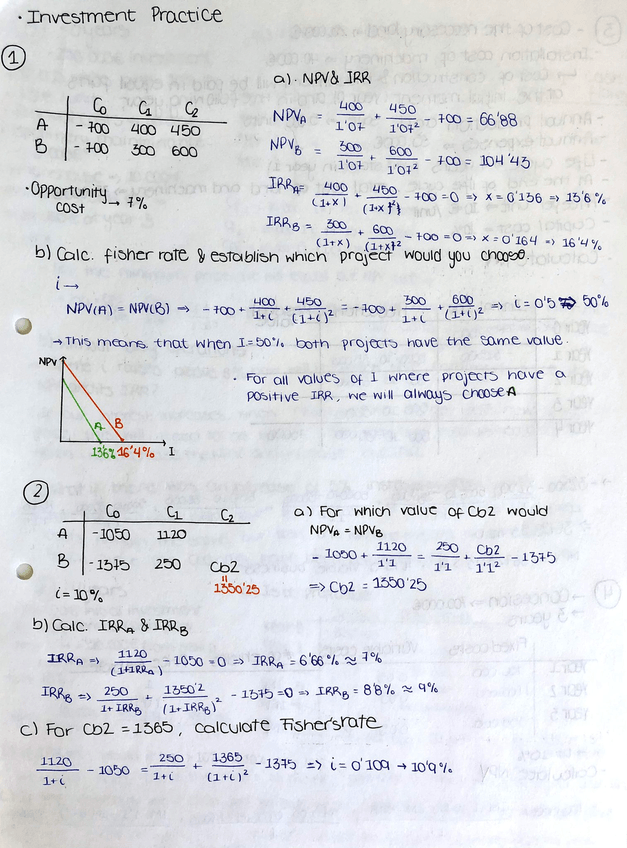 · Investment Practice
1
a). NPV & IRR
C0 C1 C2
A -700 400 450
B -700 300 600
NPVA = 400/1'07 + 450/1'07² - 700 = 66'88
NPVB = 300/1'07 + 600/1'07² - 700 = 104'43
· Opportunity cost → 7%
IRRA = 400/(1+x) + 450/(1+x)² - 700 = 0 => x = 0'136 => 13'6%
IRRB = 300/(1+x) + 600/(1+x)² - 700 = 0 => x = 0'164 => 16'4%
b) Calc. fisher rate & establish which project would you choose.
i →
NPV(A) = NPV(B) => -700 + 400/1+i + 450/(1+i)² = -700 + 300/1+i + 600/(1+i)² => i = 0'5 => 50%
→ This means that when I=50% both projects have the same value.
NPV
A B
13'6% 16'4% I
· For all values of I where projects have a
positive IRR, we will always choose A
2
C0 C1 C2
A -1050 1120
B -1375 250 Cb2
= 1350'25
i = 10%
a) For which value of Cb2 would
NPVA = NPVB
- 1050 + 1120/1'1 = 250/1'1 + Cb2/1'1² - 1375
=> Cb2 = 1350'25
b) Calc. IRRA & IRRB
IRRA => 1120/(1+IRRA) - 1050 = 0 => IRRA = 6'66% ≈ 7%
IRRB => 250/1+IRRB + 1350'2/(1+IRRB)² - 1375 = 0 => IRRB = 8'8% ≈ 9%
c) For Cb2 = 1365, calculate Fisher's rate
1120/1+i - 1050 = 250/1+i + 1365/(1+i)² - 1375 => i = 0'109 → 10'9%